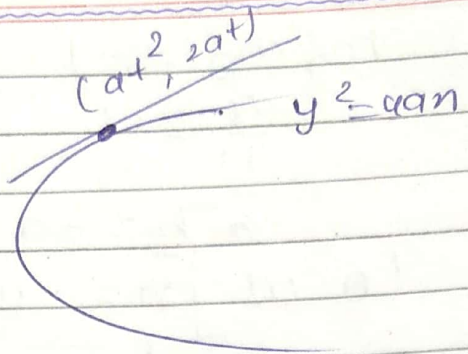 (at², 2at)
y² = 4ax